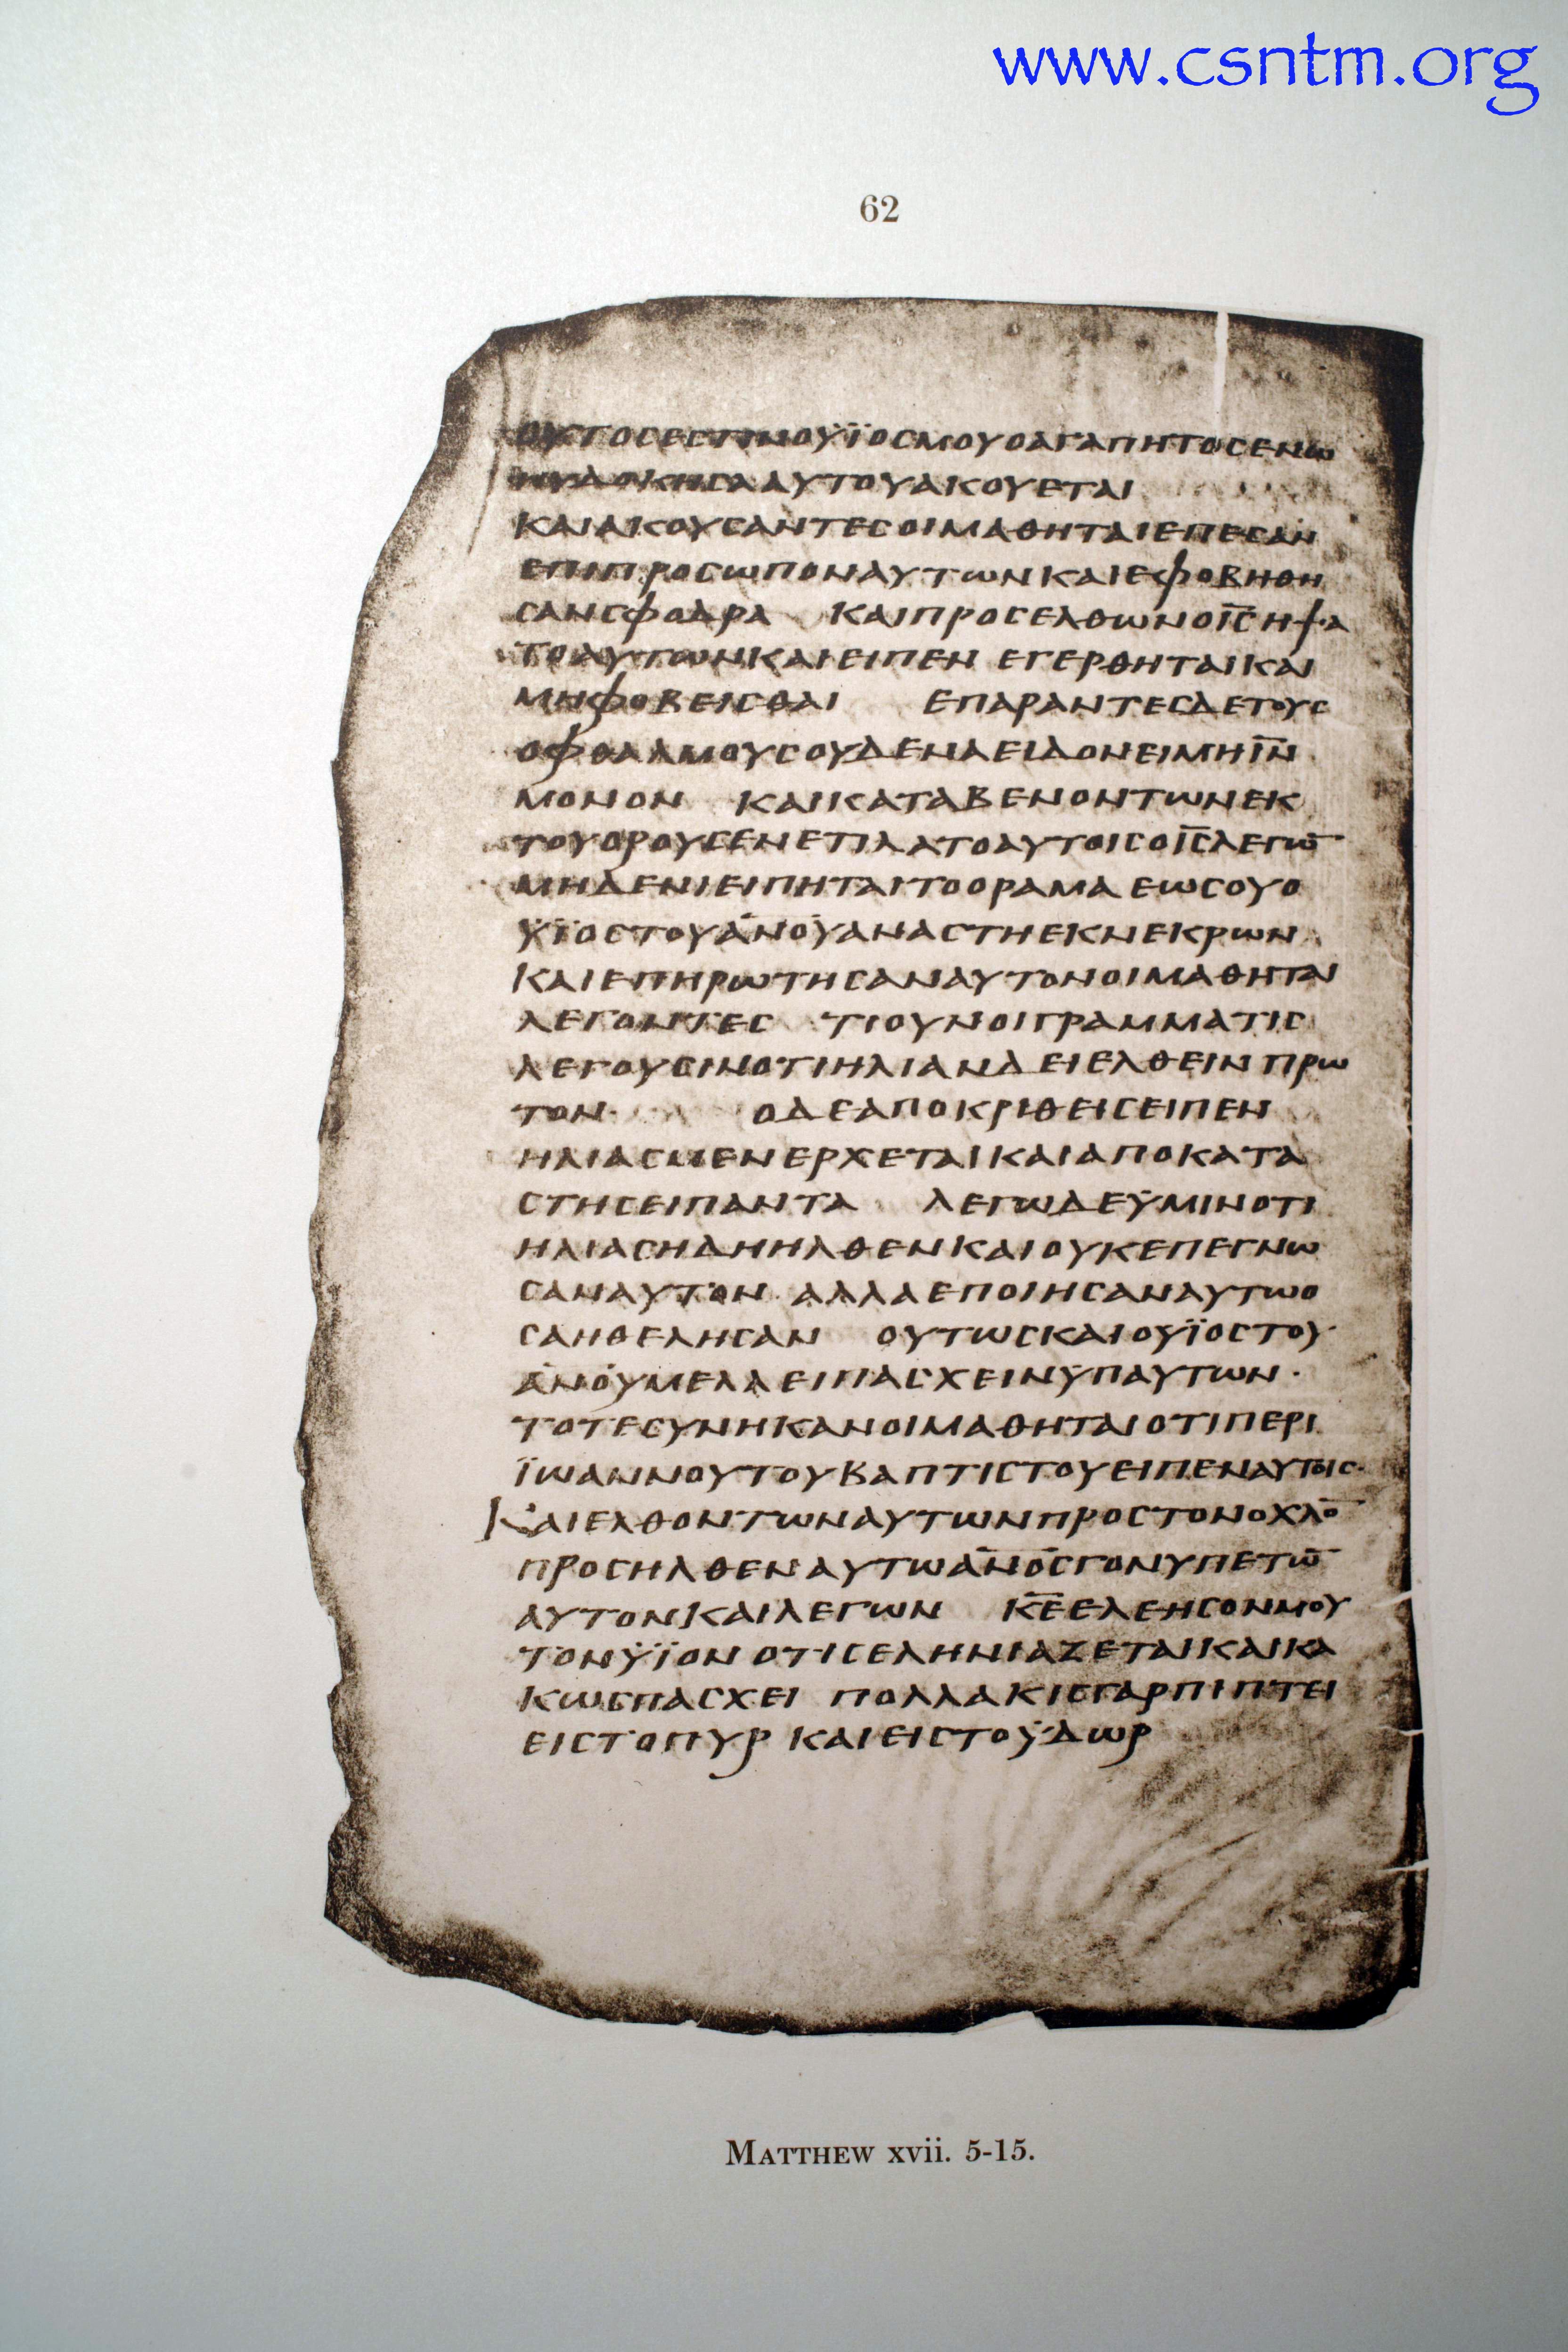 www.csntm.org
62
ΟΥΤΟCΕCΤΙΝΟΫΪΟCΜΟΥΟΑΓΑΠΗΤΟCΕΝΩ
ΗΥΔΟΚΗCΑΑΥΤΟΥΑΚΟΥΕΤΑΙ
ΚΑΙΑΚΟΥCΑΝΤΕCΟΙΜΑΘΗΤΑΙΕΠΕCΑΝ
ΕΠΙΠΡΟCΩΠΟΝΑΥΤΩΝΚΑΙΕΦΟΒΗΘΗ
CΑΝCΦΟΔΡΑ ΚΑΙΠΡΟCΕΛΘΩΝΟΙ̅C̅ΗΨΑ
ΤΟΑΥΤΩΝΚΑΙΕΙΠΕΝ ΕΓΕΡΘΗΤΑΙΚΑΙ
ΜΗΦΟΒΕΙCΘΑΙ ΕΠΑΡΑΝΤΕCΔΕΤΟΥC
ΟΦΘΑΛΜΟΥCΟΥΔΕΝΑΕΙΔΟΝΕΙΜΗΙ̅Ν̅
ΜΟΝΟΝ ΚΑΙΚΑΤΑΒΕΝΟΝΤΩΝΕΚ
ΤΟΥΟΡΟΥCΕΝΕΤΙΛΑΤΟΑΥΤΟΙCΟΙ̅C̅ΛΕΓΩ̅
ΜΗΔΕΝΙΕΙΠΗΤΑΙΤΟΟΡΑΜΑ ΕΩCΟΥΟ
ΫΪΟCΤΟΥΑ̅Ν̅Ο̅Υ̅ΑΝΑCΤΗΕΚΝΕΚΡΩΝ
ΚΑΙΕΠΗΡΩΤΗCΑΝΑΥΤΟΝΟΙΜΑΘΗΤΑΙ
ΛΕΓΟΝΤΕC ΤΙΟΥΝΟΙΓΡΑΜΜΑΤΙC
ΛΕΓΟΥCΙΝΟΤΙΗΛΙΑΝΔΕΙΕΛΘΕΙΝΠΡΩ
ΤΟΝ ΟΔΕΑΠΟΚΡΙΘΕΙCΕΙΠΕΝ
ΗΛΙΑCΜΕΝΕΡΧΕΤΑΙΚΑΙΑΠΟΚΑΤΑ
CΤΗCΕΙΠΑΝΤΑ ΛΕΓΩΔΕΫΜΙΝΟΤΙ
ΗΛΙΑCΗΔΗΗΛΘΕΝΚΑΙΟΥΚΕΠΕΓΝΩ
CΑΝΑΥΤΟΝ ΑΛΛΑΕΠΟΙΗCΑΝΑΥΤΩΟ
CΑΗΘΕΛΗCΑΝ ΟΥΤΩCΚΑΙΟΫΪΟCΤΟΥ
Α̅Ν̅Ο̅Υ̅ΜΕΛΛΕΙΠΑCΧΕΙΝΫΠΑΥΤΩΝ·
ΤΟΤΕCΥΝΗΚΑΝΟΙΜΑΘΗΤΑΙΟΤΙΠΕΡΙ
ΪΩΑΝΝΟΥΤΟΥΒΑΠΤΙCΤΟΥΕΙΠΕΝΑΥΤΟΙC·
ΚΑΙΕΛΘΟΝΤΩΝΑΥΤΩΝΠΡΟCΤΟΝΟΧΛΟ̅
ΠΡΟCΗΛΘΕΝΑΥΤΩΑ̅Ν̅Ο̅C̅ΓΟΝΥΠΕΤΩ̅
ΑΥΤΟΝΚΑΙΛΕΓΩΝ Κ̅Ε̅ΕΛΕΗCΟΝΜΟΥ
ΤΟΝΫΪΟΝΟΤΙCΕΛΗΝΙΑΖΕΤΑΙΚΑΙΚΑ
ΚΩCΠΑCΧΕΙ ΠΟΛΛΑΚΙCΓΑΡΠΙΠΤΕΙ
ΕΙCΤΟΠΥΡ ΚΑΙΕΙCΤΟΫΔΩΡ
MATTHEW xvii. 5-15.